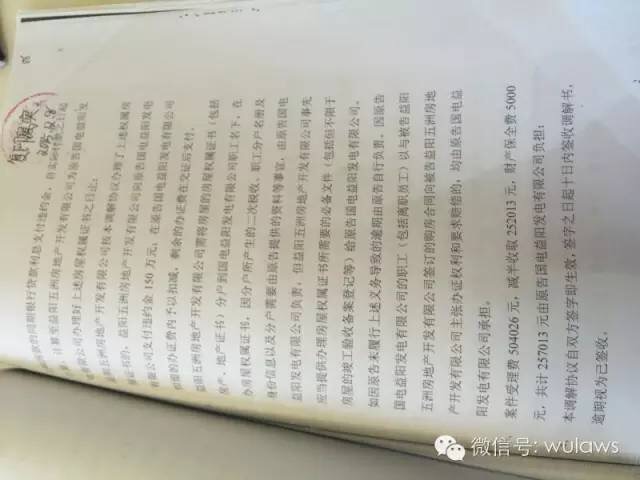 的同期银行贷款利息支付违约金,自实际付款之日起
计算至益阳五洲房地产开发有限公司为原告国电益阳发
有限公司办理好上述房屋权属证书之日止;
五洲房地产开发有限公司按本调解协议办理了上述权属房
证书的,益阳五洲房地产开发有限公司向原告国电益阳发电
有限公司支付违约金150万元,在原告国电益阳发电有限公司
的办证费内予以扣减,剩余的办证费在交证后支付。
益阳五洲房地产开发有限公司需将房屋的房屋权属证书(包括
房产、地产证书)分户到国电益阳发电有限公司职工名下,在
办房屋权属证书,因分户所产生的二次税收、职工分户名册及
身份信息以及分户需要由原告提供的资料等事宜,由原告国电
益阳发电有限公司负责,但益阳五洲房地产开发有限公司事先
应当提供办理房屋权属证书所需要的必备文件(包括但不限于
房屋的竣工验收备案登记等)给原告国电益阳发电有限公司。
如因原告未履行上述义务导致的逾期由原告自行负责。因原告
国电益阳发电有限公司的职工(包括离职员工)以与被告益阳
五洲房地产开发有限公司签订的购房合同向被告益阳五洲房地
产开发有限公司主张办证权利和要求赔偿的,均由原告国电益
阳发电有限公司承担。
案件受理费504026元,减半收取252013元,财产保全费5000
元,共计257013元由原告国电益阳发电有限公司负担;
本调解协议自双方签字即生效,签字之日起十日内签收调解书,
逾期视为已签收。
微信号: wulaws